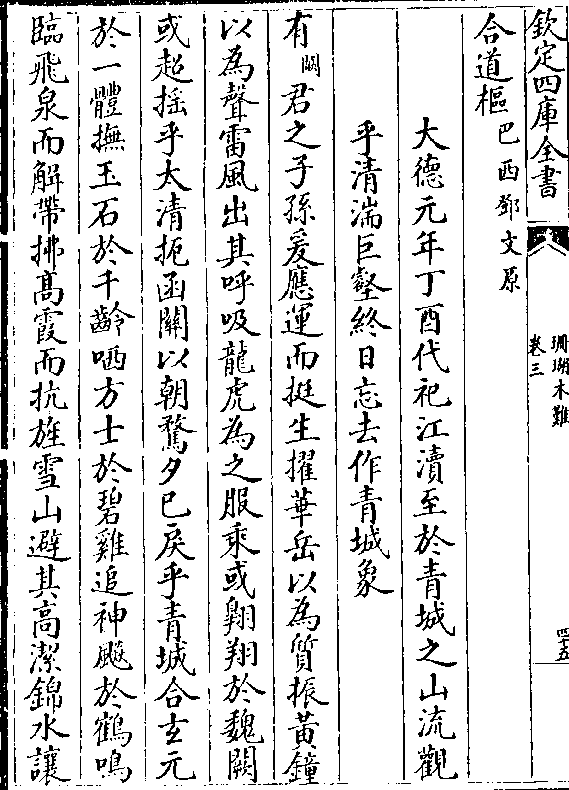 欽定四庫全書
珊瑚木難
卷三
四十五
合道樞巴西鄧文原
大德元年丁酉代祀江瀆至於青城之山流觀
乎清湍巨壑終日忘去作青城象
有闕君之子孫爰應運而挺生擢華岳以為質振黃鐘
以為聲雷風出其呼吸龍虎為之服乘或翱翔於魏闕
或超摇乎太清扼函關以朝騖夕已戾乎青城合玄元
於一體撫玉石於千齡哂方士於碧雞追神飈於鶴鳴
臨飛泉而解帶拂髙霞而抗旌雪山避其高潔錦水讓